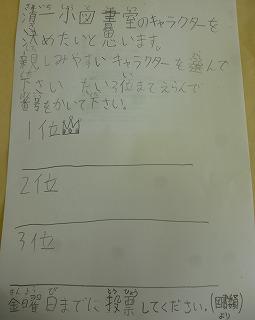 清一小図書室のキャラクターを
決めたいと思います。
親しみやすいキャラクターを選んで
下さい だい3位までえらんで
番号をかいて下さい。
1位
2位
3位
きんようび とうひょう
金曜日までに投票してください。(
より